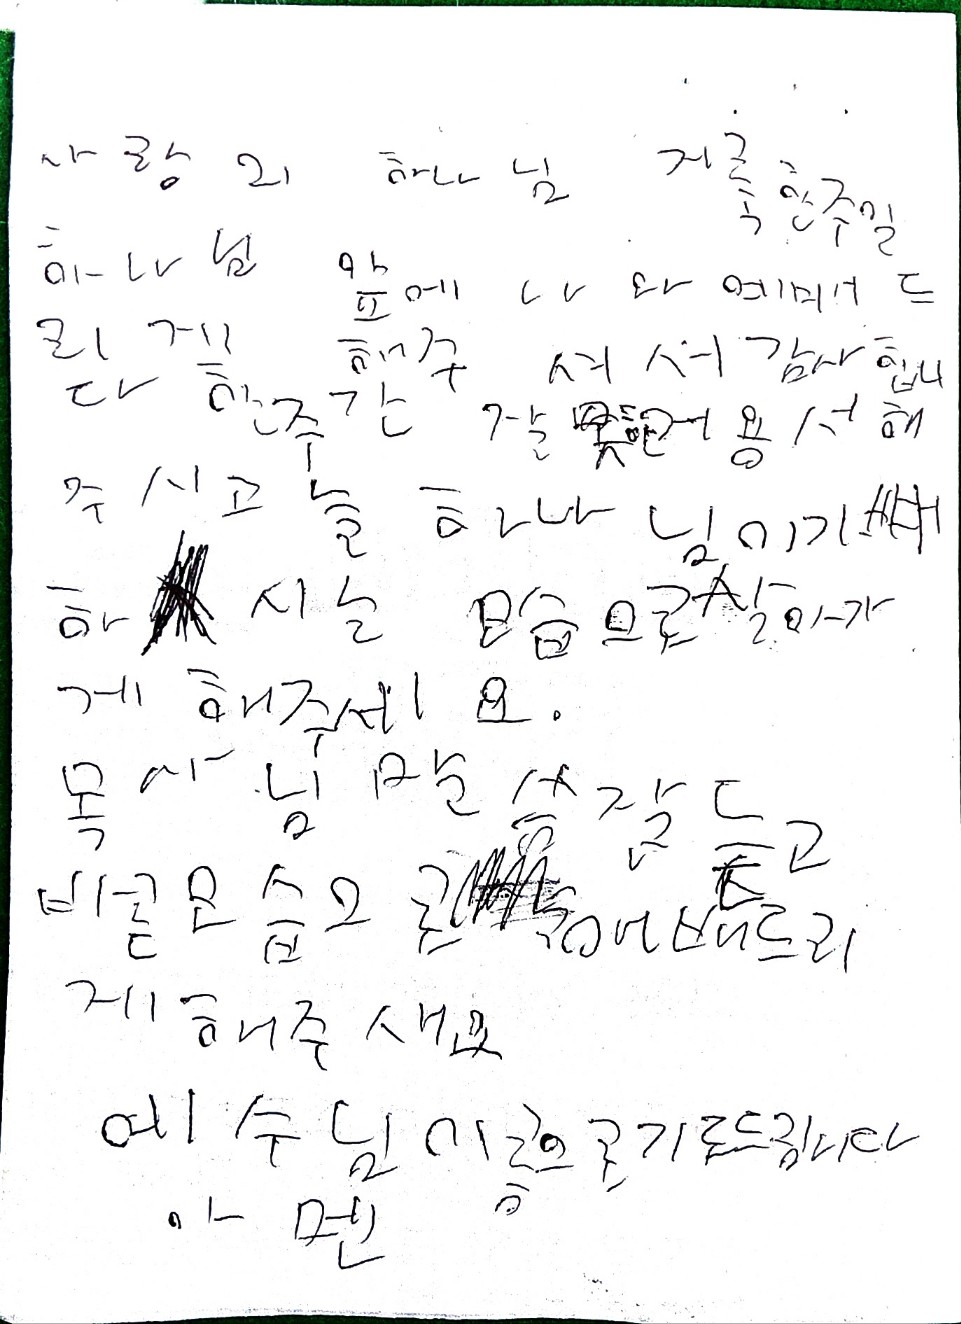 사랑의 하나님 거룩한주일
하나님 앞에 나와 예배 드
리게 해주셔서 감사합니
다 한주간 잘못한거 용서해
주시고 늘 하나님이 기뻐
하시는 모습으로 살아가
게 해주세요.
목사님 말씀 잘 듣고
바른모습으로 예배드리
게 해주새요
예수님 이름으로 기도드립니다
아멘